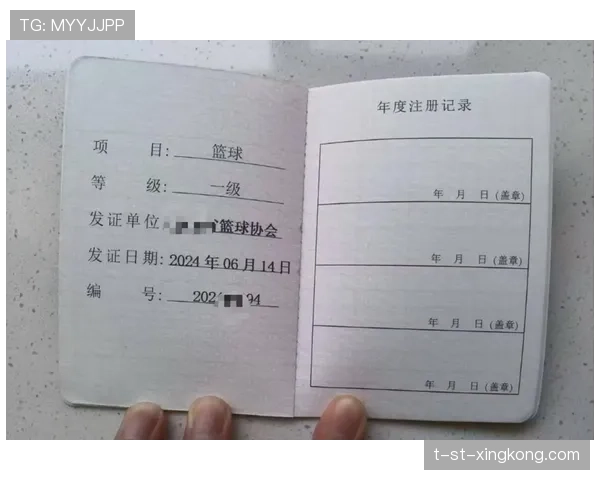 TG: MYYJJPP
项 目: 篮球
等 级: 一级
发证单位 篮球协会
发证日期: 2024 年 06 月 14 日
编 号: 202 94
年度注册记录
年 月 日(盖章)
年 月 日(盖章)
年 月 日(盖章)
年 月 日(盖章)
t-st-xingkong.com